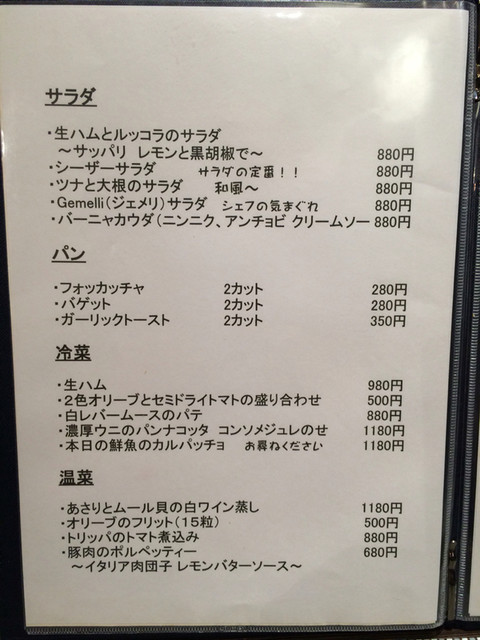 サラダ
・生ハムとルッコラのサラダ
～サッパリ レモンと黒胡椒で～ 880円
・シーザーサラダ サラダの定番！！ 880円
・ツナと大根のサラダ 和風～ 880円
・Gemelli（ジェメリ）サラダ シェフの気まぐれ 880円
・バーニャカウダ（ニンニク、アンチョビ クリームソー 880円
パン
・フォッカッチャ 2カット 280円
・バゲット 2カット 280円
・ガーリックトースト 2カット 350円
冷菜
・生ハム 980円
・２色オリーブとセミドライトマトの盛り合わせ 500円
・白レバームースのパテ 880円
・濃厚ウニのパンナコッタ コンソメジュレのせ 1180円
・本日の鮮魚のカルパッチョ お尋ねください 1180円
温菜
・あさりとムール貝の白ワイン蒸し 1180円
・オリーブのフリット（15粒） 500円
・トリッパのトマト煮込み 880円
・豚肉のポルペッティー 680円
～イタリア肉団子 レモンバターソース～